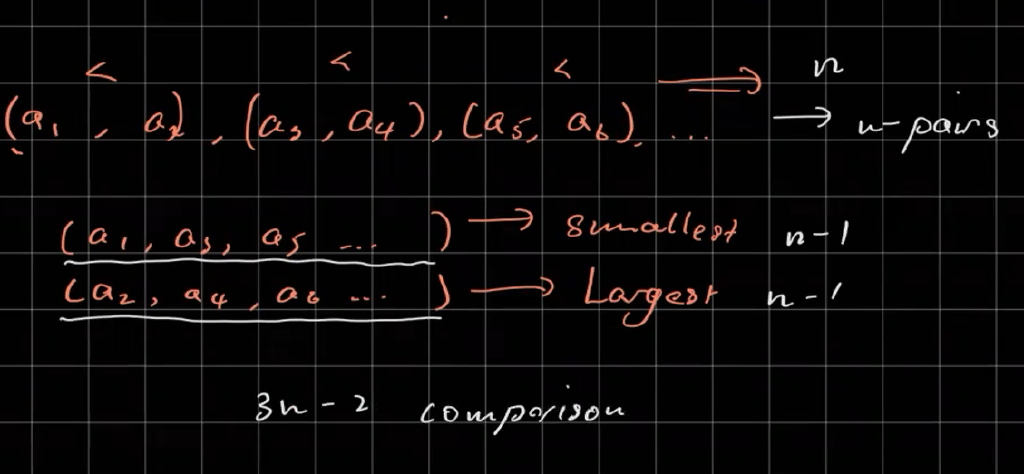 < < < ⟹ n
(a₁, a₂), (a₃, a₄), (a₅, a₆), ... → n-pairs
(a₁, a₃, a₅ ... ) → smallest n-1
(a₂, a₄, a₆ ... ) → Largest n-1
3n-2 comparison